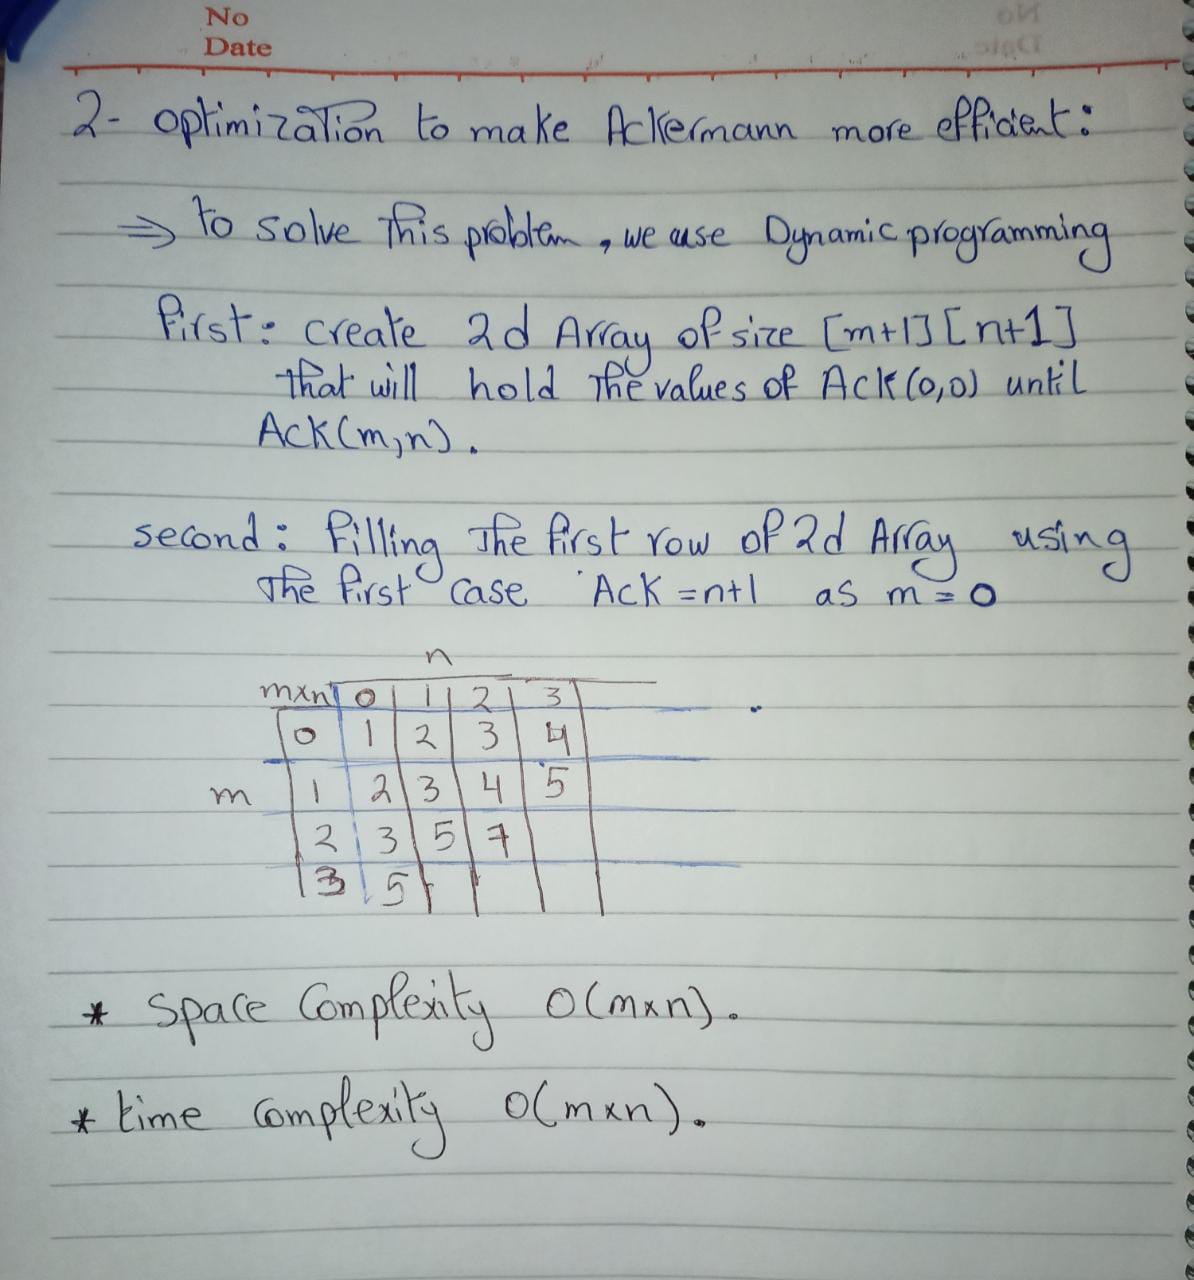 No
Date
2- optimization to make Ackermann more efficient:
⇒ to solve This problem, we use Dynamic programming
first: create 2d Array of size [m+1][n+1]
that will hold The values of Ack(0,0) until
Ack(m,n).
second: filling The first row of 2d Array using
The first case Ack = n+1 as m = 0
n
mxn 0 1 2 3
0 1 2 3 4
m 1 2 3 4 5
2 3 5 7
3 5
* Space Complexity O(mxn).
* time complexity O(mxn).